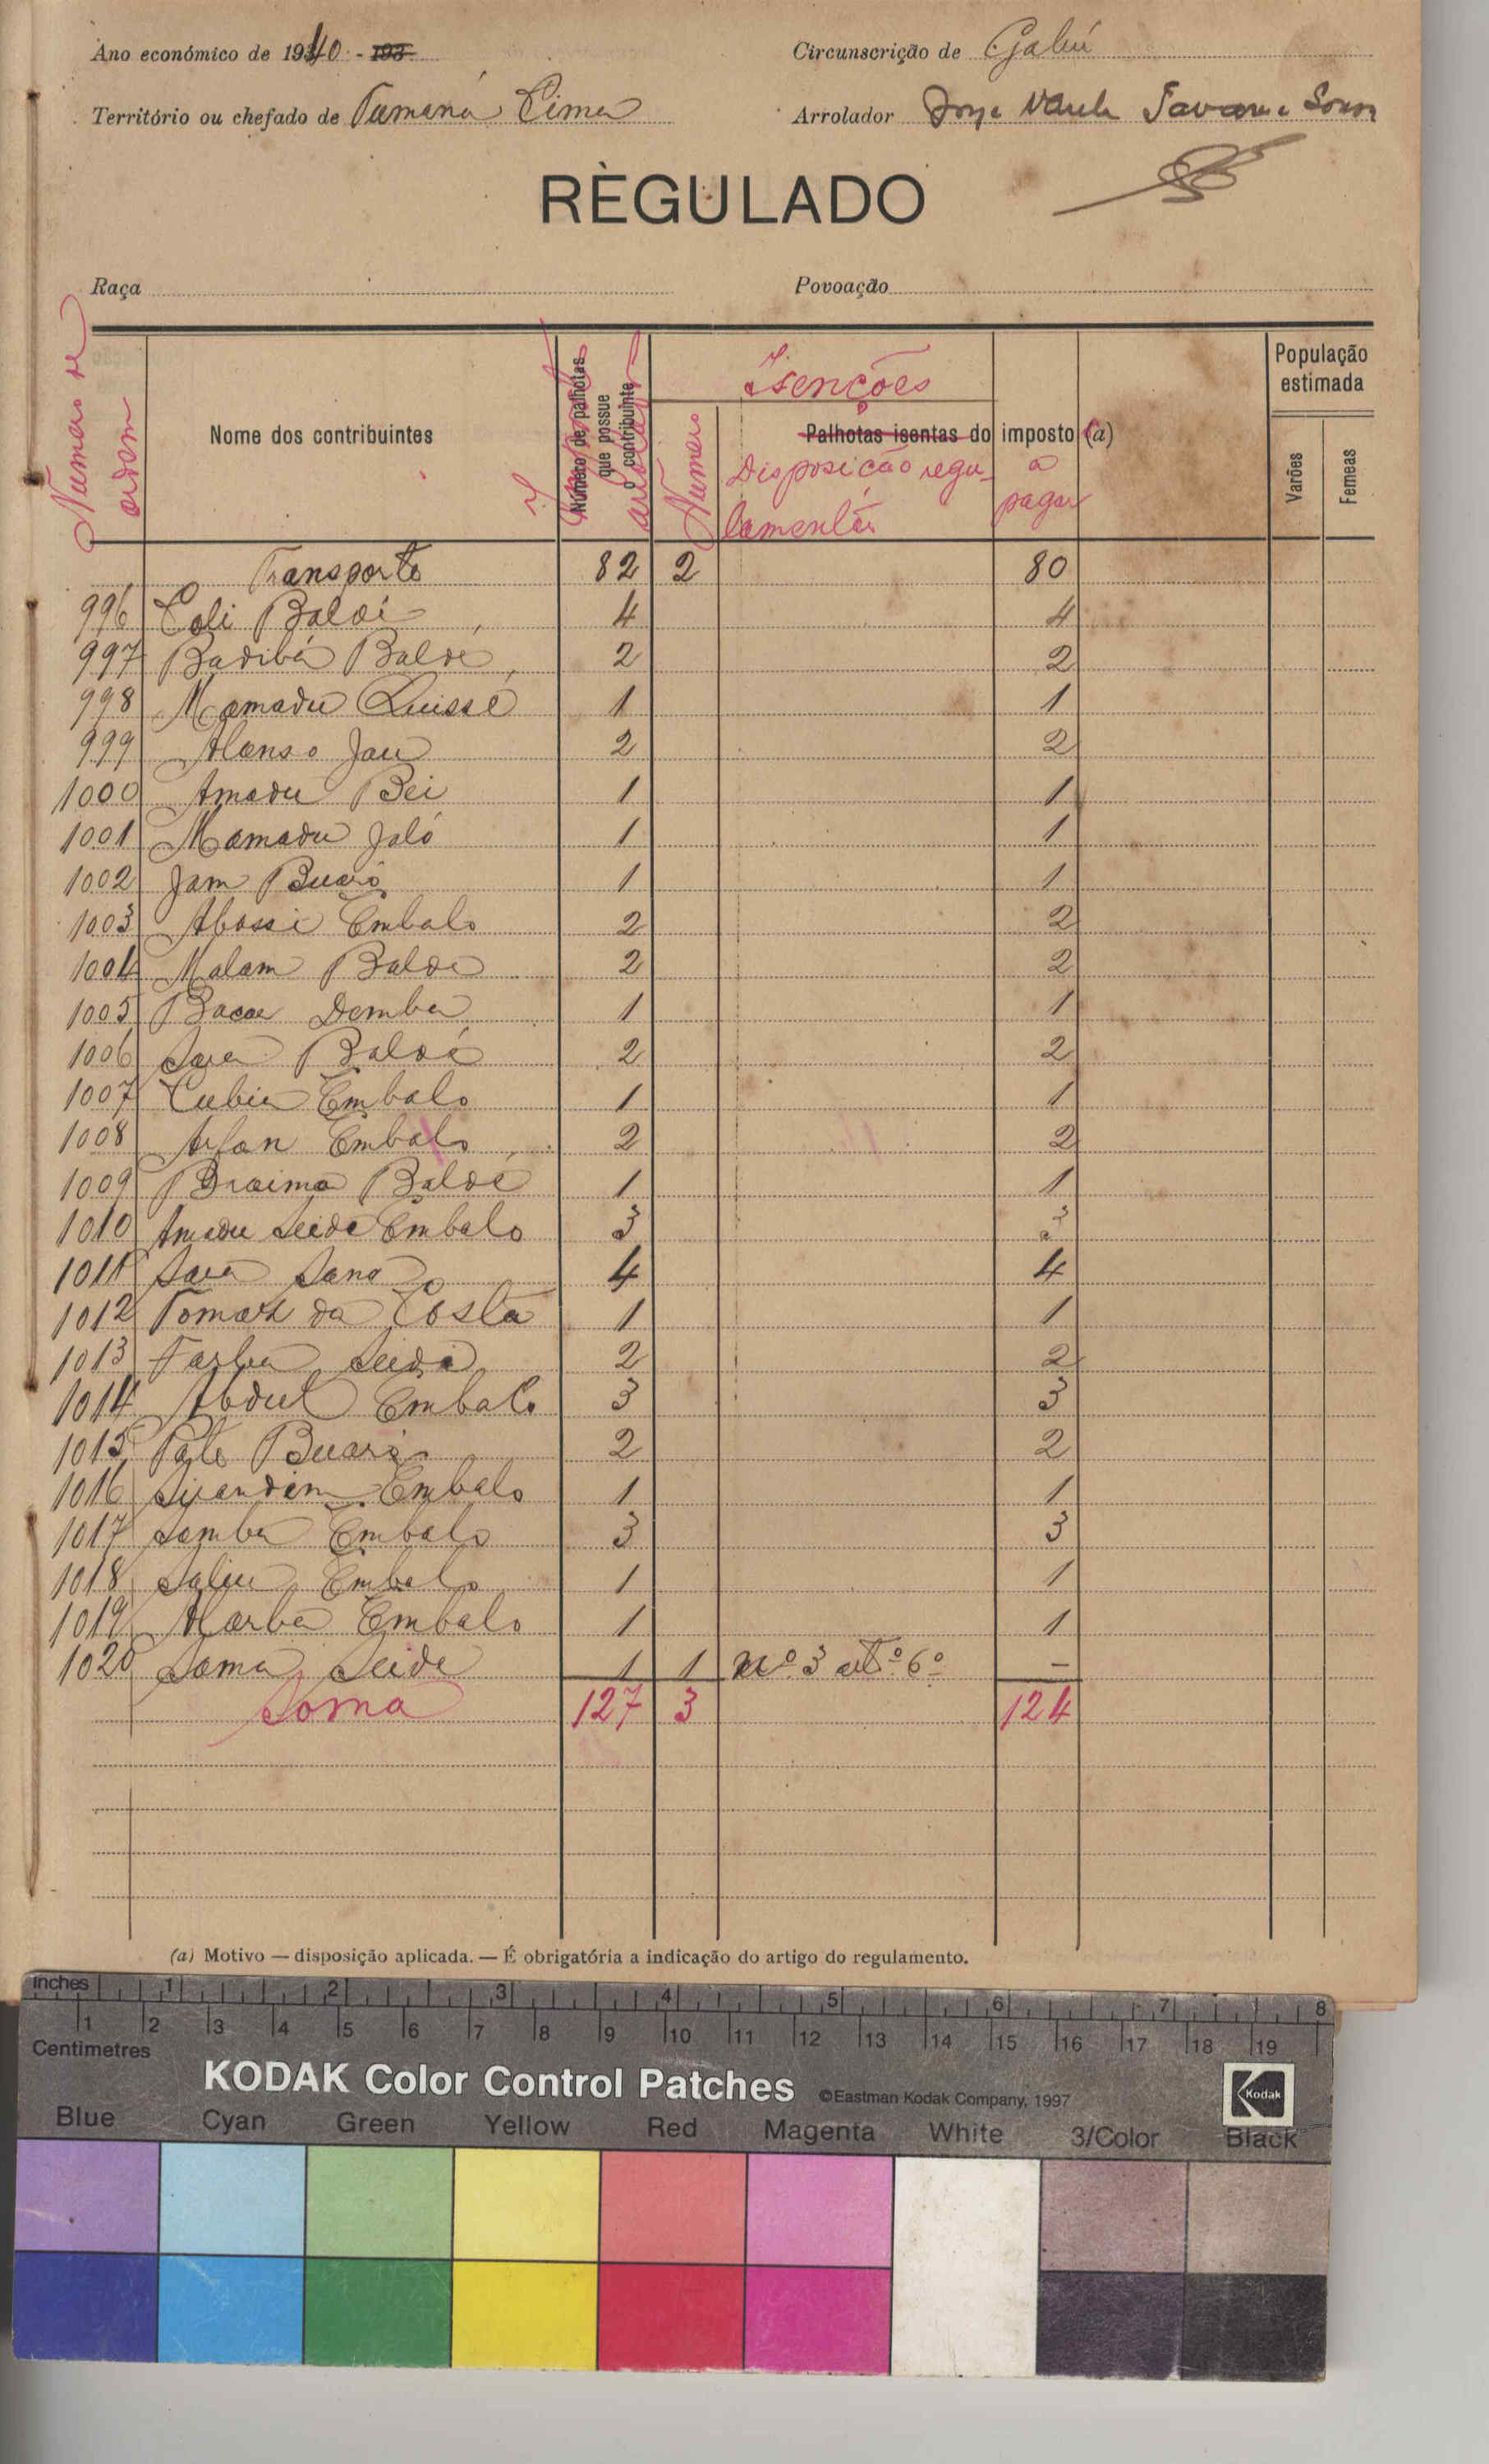 Ano económico de 1940 - 193
Circunscrição de Gabú
Território ou chefado de Tumaná Cima
Arrolador Jorge Tavares e Sousa
RÈGULADO
Raça
Povoação
Numero de ordem
Nome dos contribuintes
Número de palhotas que possue o contribuinte
Isenções
Numero
Palhotas isentas do imposto (a)
Disposição regulamentar
a pagar
População estimada
Varões
Femeas
Transporte 82 2 80
996 Coli Baldé 4 4
997 Badibá Baldé 2 2
998 Mamadu Quissé 1 1
999 Alanso Jau 2 2
1000 Amadu Bei 1 1
1001 Mamadu Jaló 1 1
1002 Jam Buaró 1 1
1003 Abassi Embalo 2 2
1004 Malam Balde 2 2
1005 Bacar Demba 1 1
1006 Sara Baldé 2 2
1007 Cubia Embalo 1 1
1008 Arfan Embalo 2 2
1009 Braima Baldé 1 1
1010 Amadu Seide Embalo 3 3
1011 Sara Sano 4 4
1012 Tomaz da Costa 1 1
1013 Farba Seide 2 2
1014 Abdul Embalo 3 3
1015 Paté Buaró 2 2
1016 Embalo 1 1
1017 Samba Embalo 3 3
1018 Saliu Embalo 1 1
1019 Embalo 1 1
1020 Sama Seide 1 1 nº 3 artº 6º —
Soma 127 3 124
(a) Motivo — disposição aplicada. — É obrigatória a indicação do artigo do regulamento.
inches 1 2 3 4 5 6 7 8
1 2 3 4 5 6 7 8 9 10 11 12 13 14 15 16 17 18 19
Centimetres
KODAK Color Control Patches ©Eastman Kodak Company, 1997 Kodak
Blue Cyan Green Yellow Red Magenta White 3/Color Black